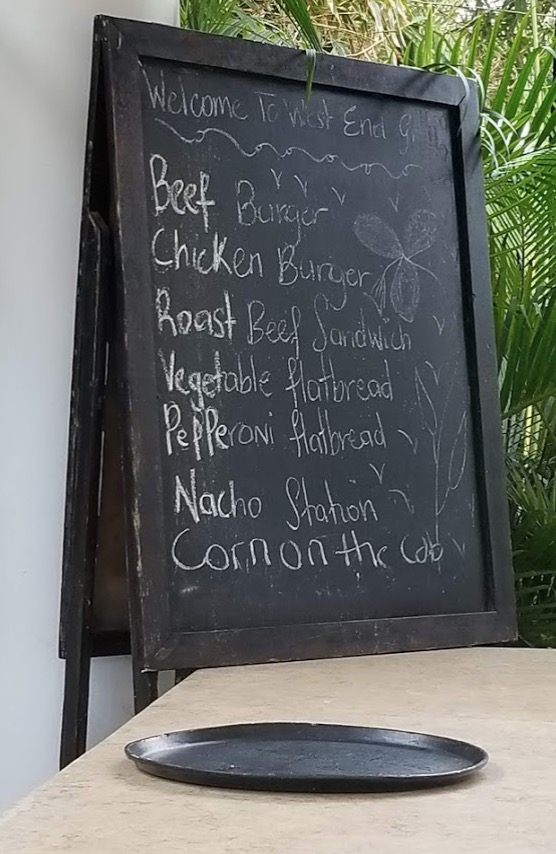 Welcome To West End
Beef Burger
Chicken Burger
Roast Beef Sandwich
Vegetable flatbread
Pepperoni flatbread
Nacho Station
Corn on the Cob